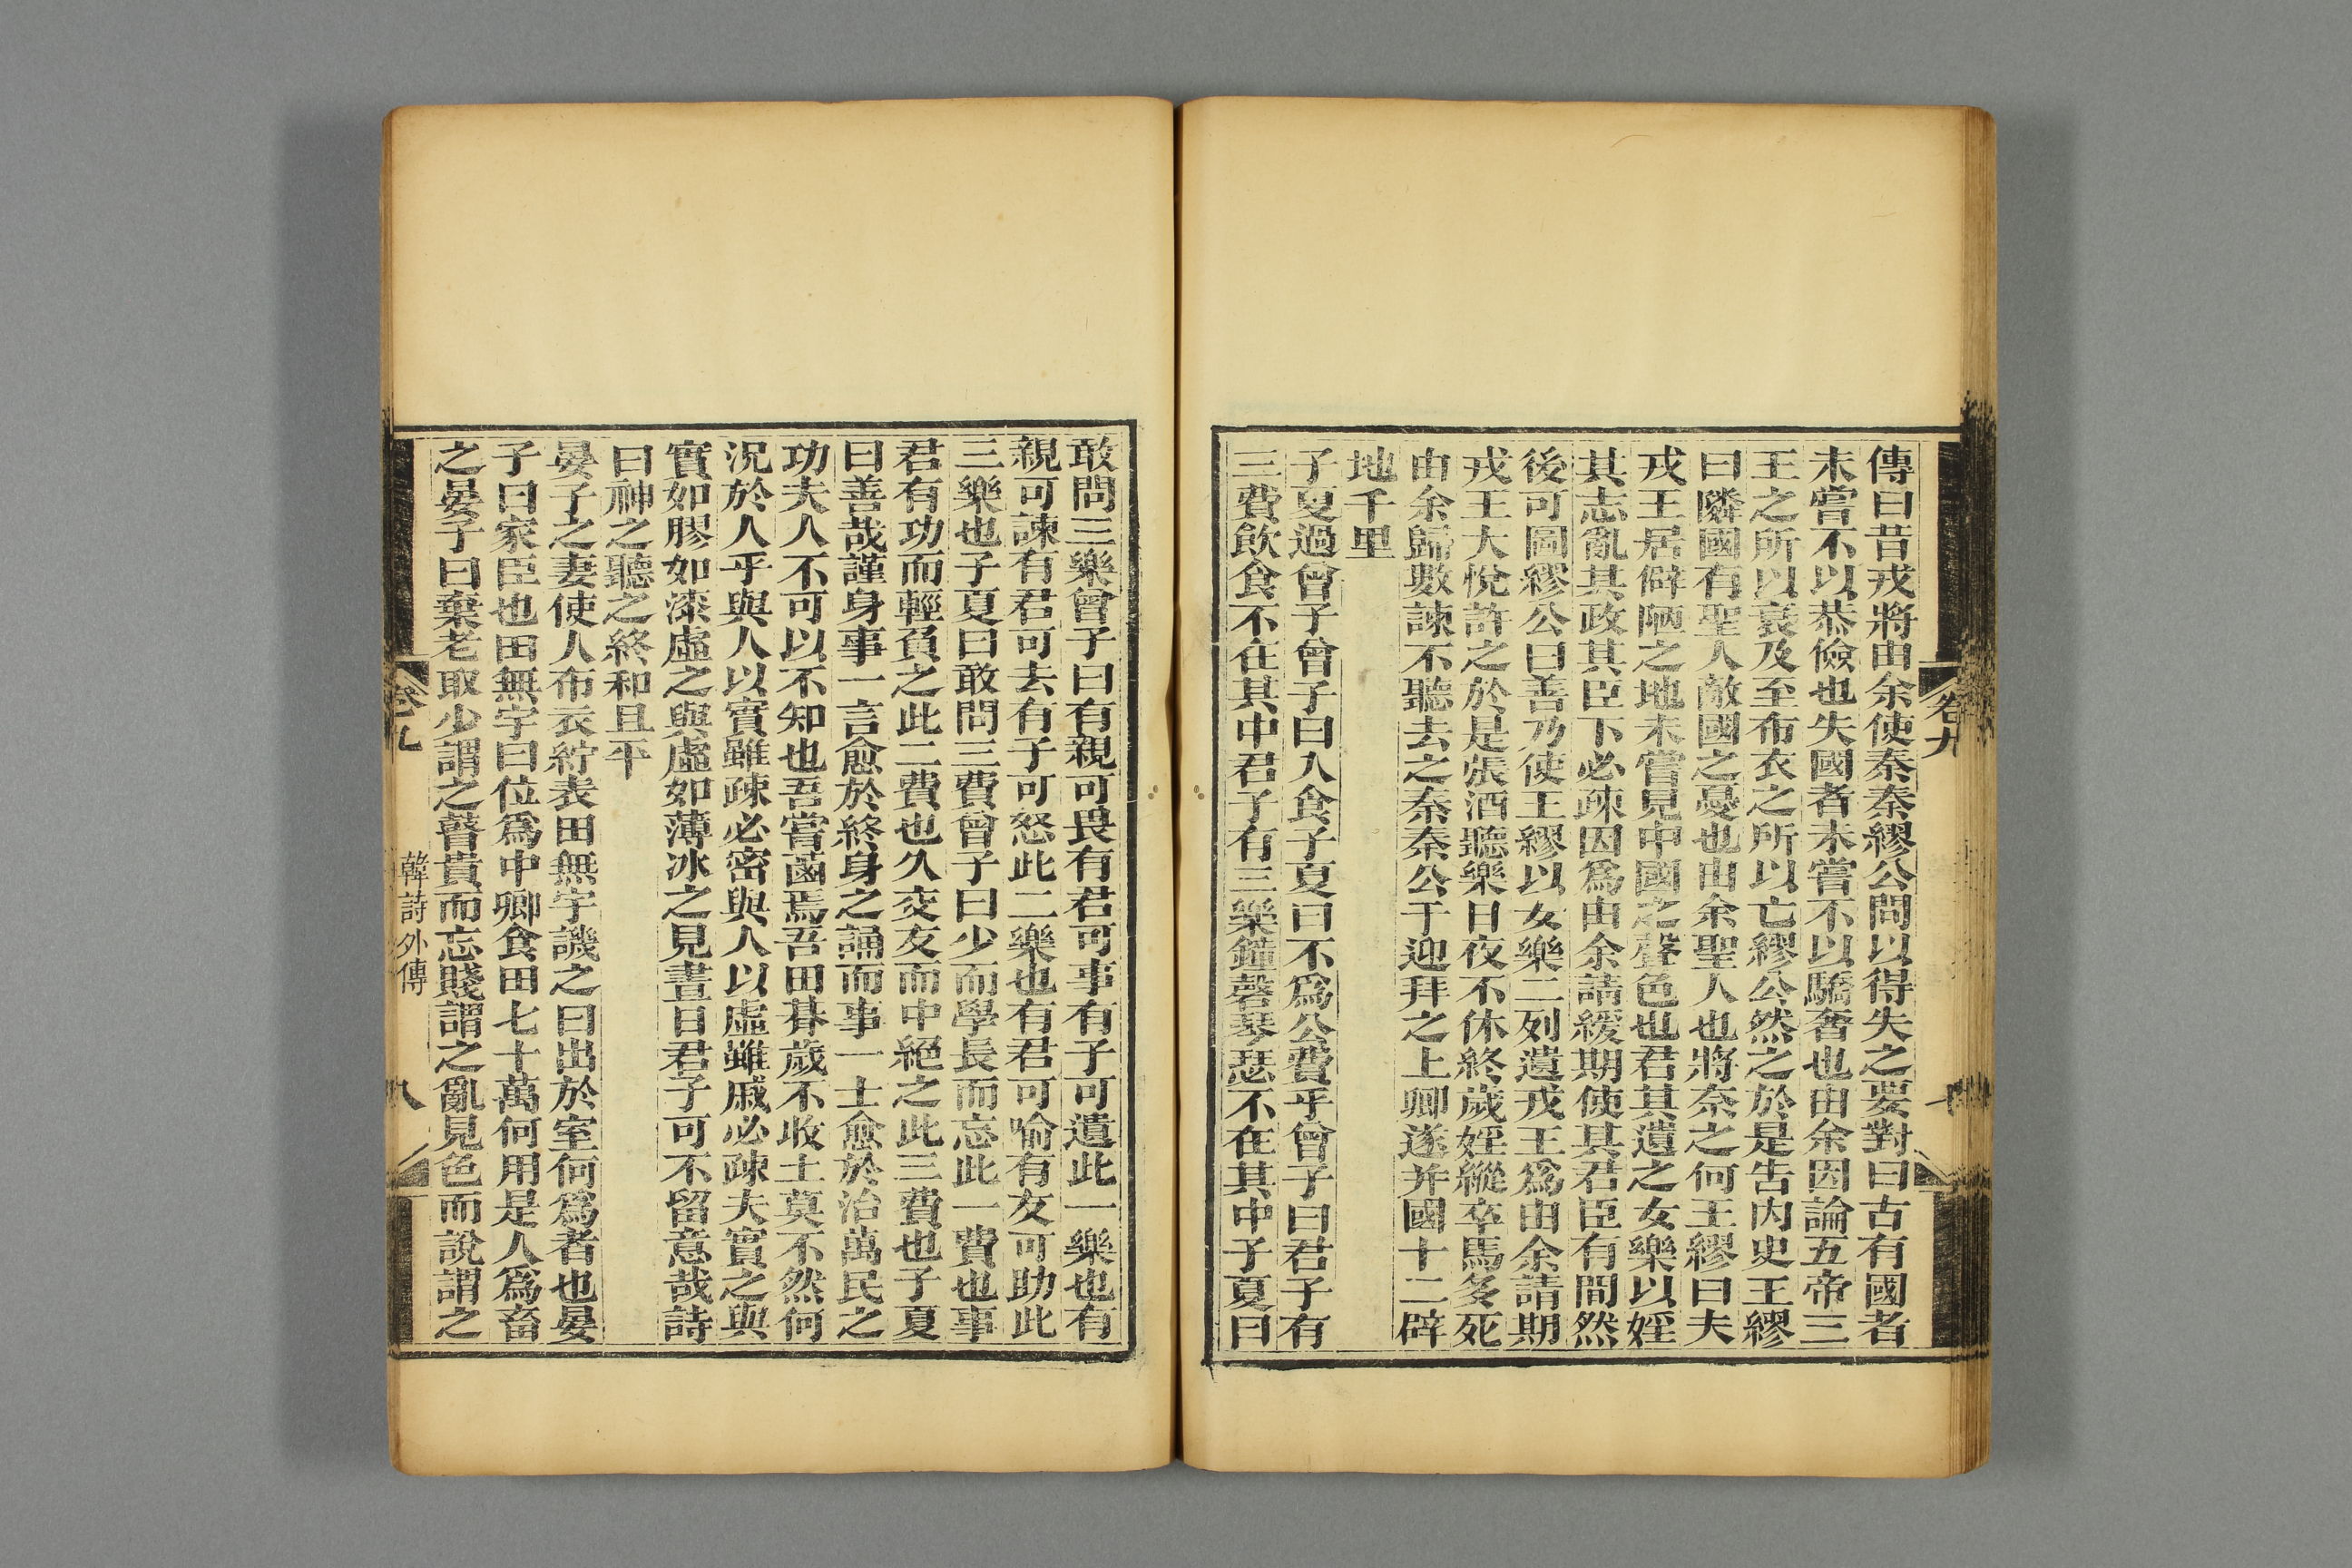 傳曰昔戎將由余使秦秦繆公問以得失之要對曰古有國者
未嘗不以恭儉也失國者未嘗不以驕奢也由余因論五帝三
王之所以衰及至布衣之所以亡繆公然之於是告內史王繆
曰隣國有聖人敵國之憂也由余聖人也將奈之何王繆曰夫
戎王居僻陋之地未嘗見中國之聲色也君其遺之女樂以婬
其志亂其政其臣下必疎因爲由余請緩期使其君臣有間然
後可圖繆公曰善乃使王繆以女樂二列遺戎王爲由余請期
戎王大悅許之於是張酒聽樂日夜不休終歲婬縱卒馬多死
由余歸數諫不聽去之秦秦公子迎拜之上卿遂并國十二辟
地千里
子夏過曾子曾子曰入食子夏曰不爲公費乎曾子曰君子有
三費飲食不在其中君子有三樂鐘磬琴瑟不在其中子夏曰
卷九
敢問三樂曾子曰有親可畏有君可事有子可遺此一樂也有
親可諫有君可去有子可怒此二樂也有君可喻有友可助此
三樂也子夏曰敢問三費曾子曰少而學長而忘此一費也事
君有功而輕負之此二費也久交友而中絕之此三費也子夏
曰善哉謹身事一言愈於終身之誦而事一士愈於治萬民之
功夫人不可以不知也吾嘗菑焉吾田朞歲不收土莫不然何
況於人乎與人以實雖疎必密與人以虛雖戚必疎夫實之與
實如膠如漆虛之與虛如薄冰之見晝日君子可不留意哉詩
曰神之聽之終和且平
晏子之妻使人布衣紵表田無宇譏之曰出於室何爲者也晏
子曰家臣也田無宇曰位爲中卿食田七十萬何用是人爲畜
之晏子曰棄老取少謂之瞽貴而忘賤謂之亂見色而說謂之
卷九
韓詩外傳
八